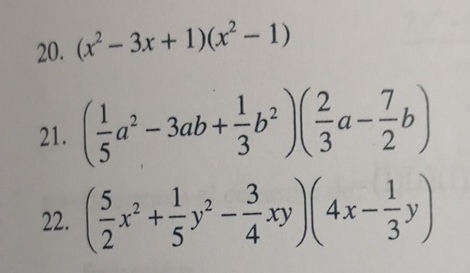 20. (x² – 3x + 1)(x² – 1)
21. (1/5 a² – 3ab + 1/3 b²)(2/3 a – 7/2 b)
22. (5/2 x² + 1/5 y² – 3/4 xy)(4x – 1/3 y)